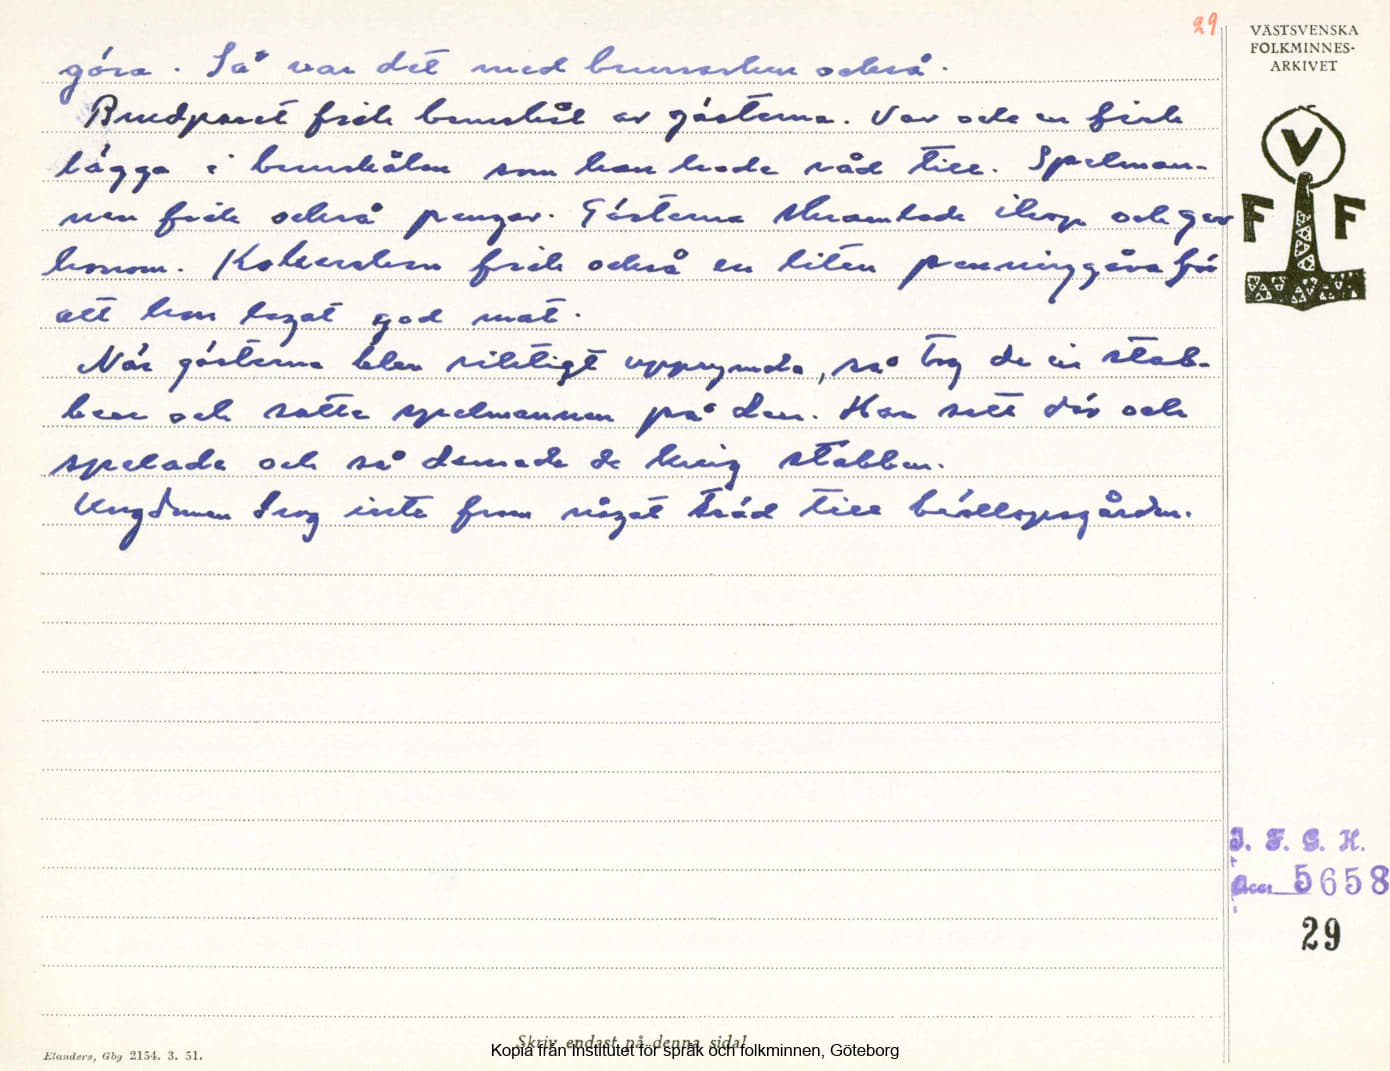 29
VÄSTSVENSKA
FOLKMINNES-
ARKIVET
V
F F
göra. Så var det med brudsken också.
Brudparet fick brudskål av gästerna. Var och en fick
lägga i brudskålen som han hade råd till. Spelman-
nen fick också pengar. Gästerna skramlade ihop och gav
honom. Kokerskan fick också en liten penninggåva för
att hon lagat god mat.
När gästerna blev riktigt upprymda, så tog de in stab-
ben och satte spelmannen på den. Han satt där och
spelade och så dansade de kring stabben.
Ungdomen drog inte fram något träd till bröllopsgården.
I. F. G. H.
Acc 5658
29
Skriv endast på denna sida!
Kopia från Institutet för språk och folkminnen, Göteborg
Elanders, Gbg 2154. 3. 51.